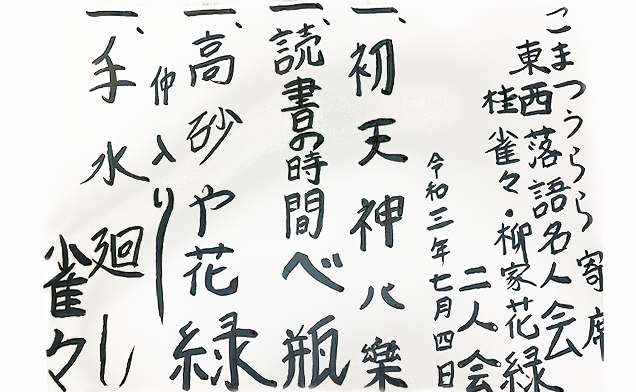 こまつうらら寄席
東西落語名人会
桂雀々・柳家花緑
二人会
令和三年七月四日
一、初天神 八樂
一、読書の時間 べ瓶
一、高砂や 花緑
仲入り
一、手水廻し
雀々